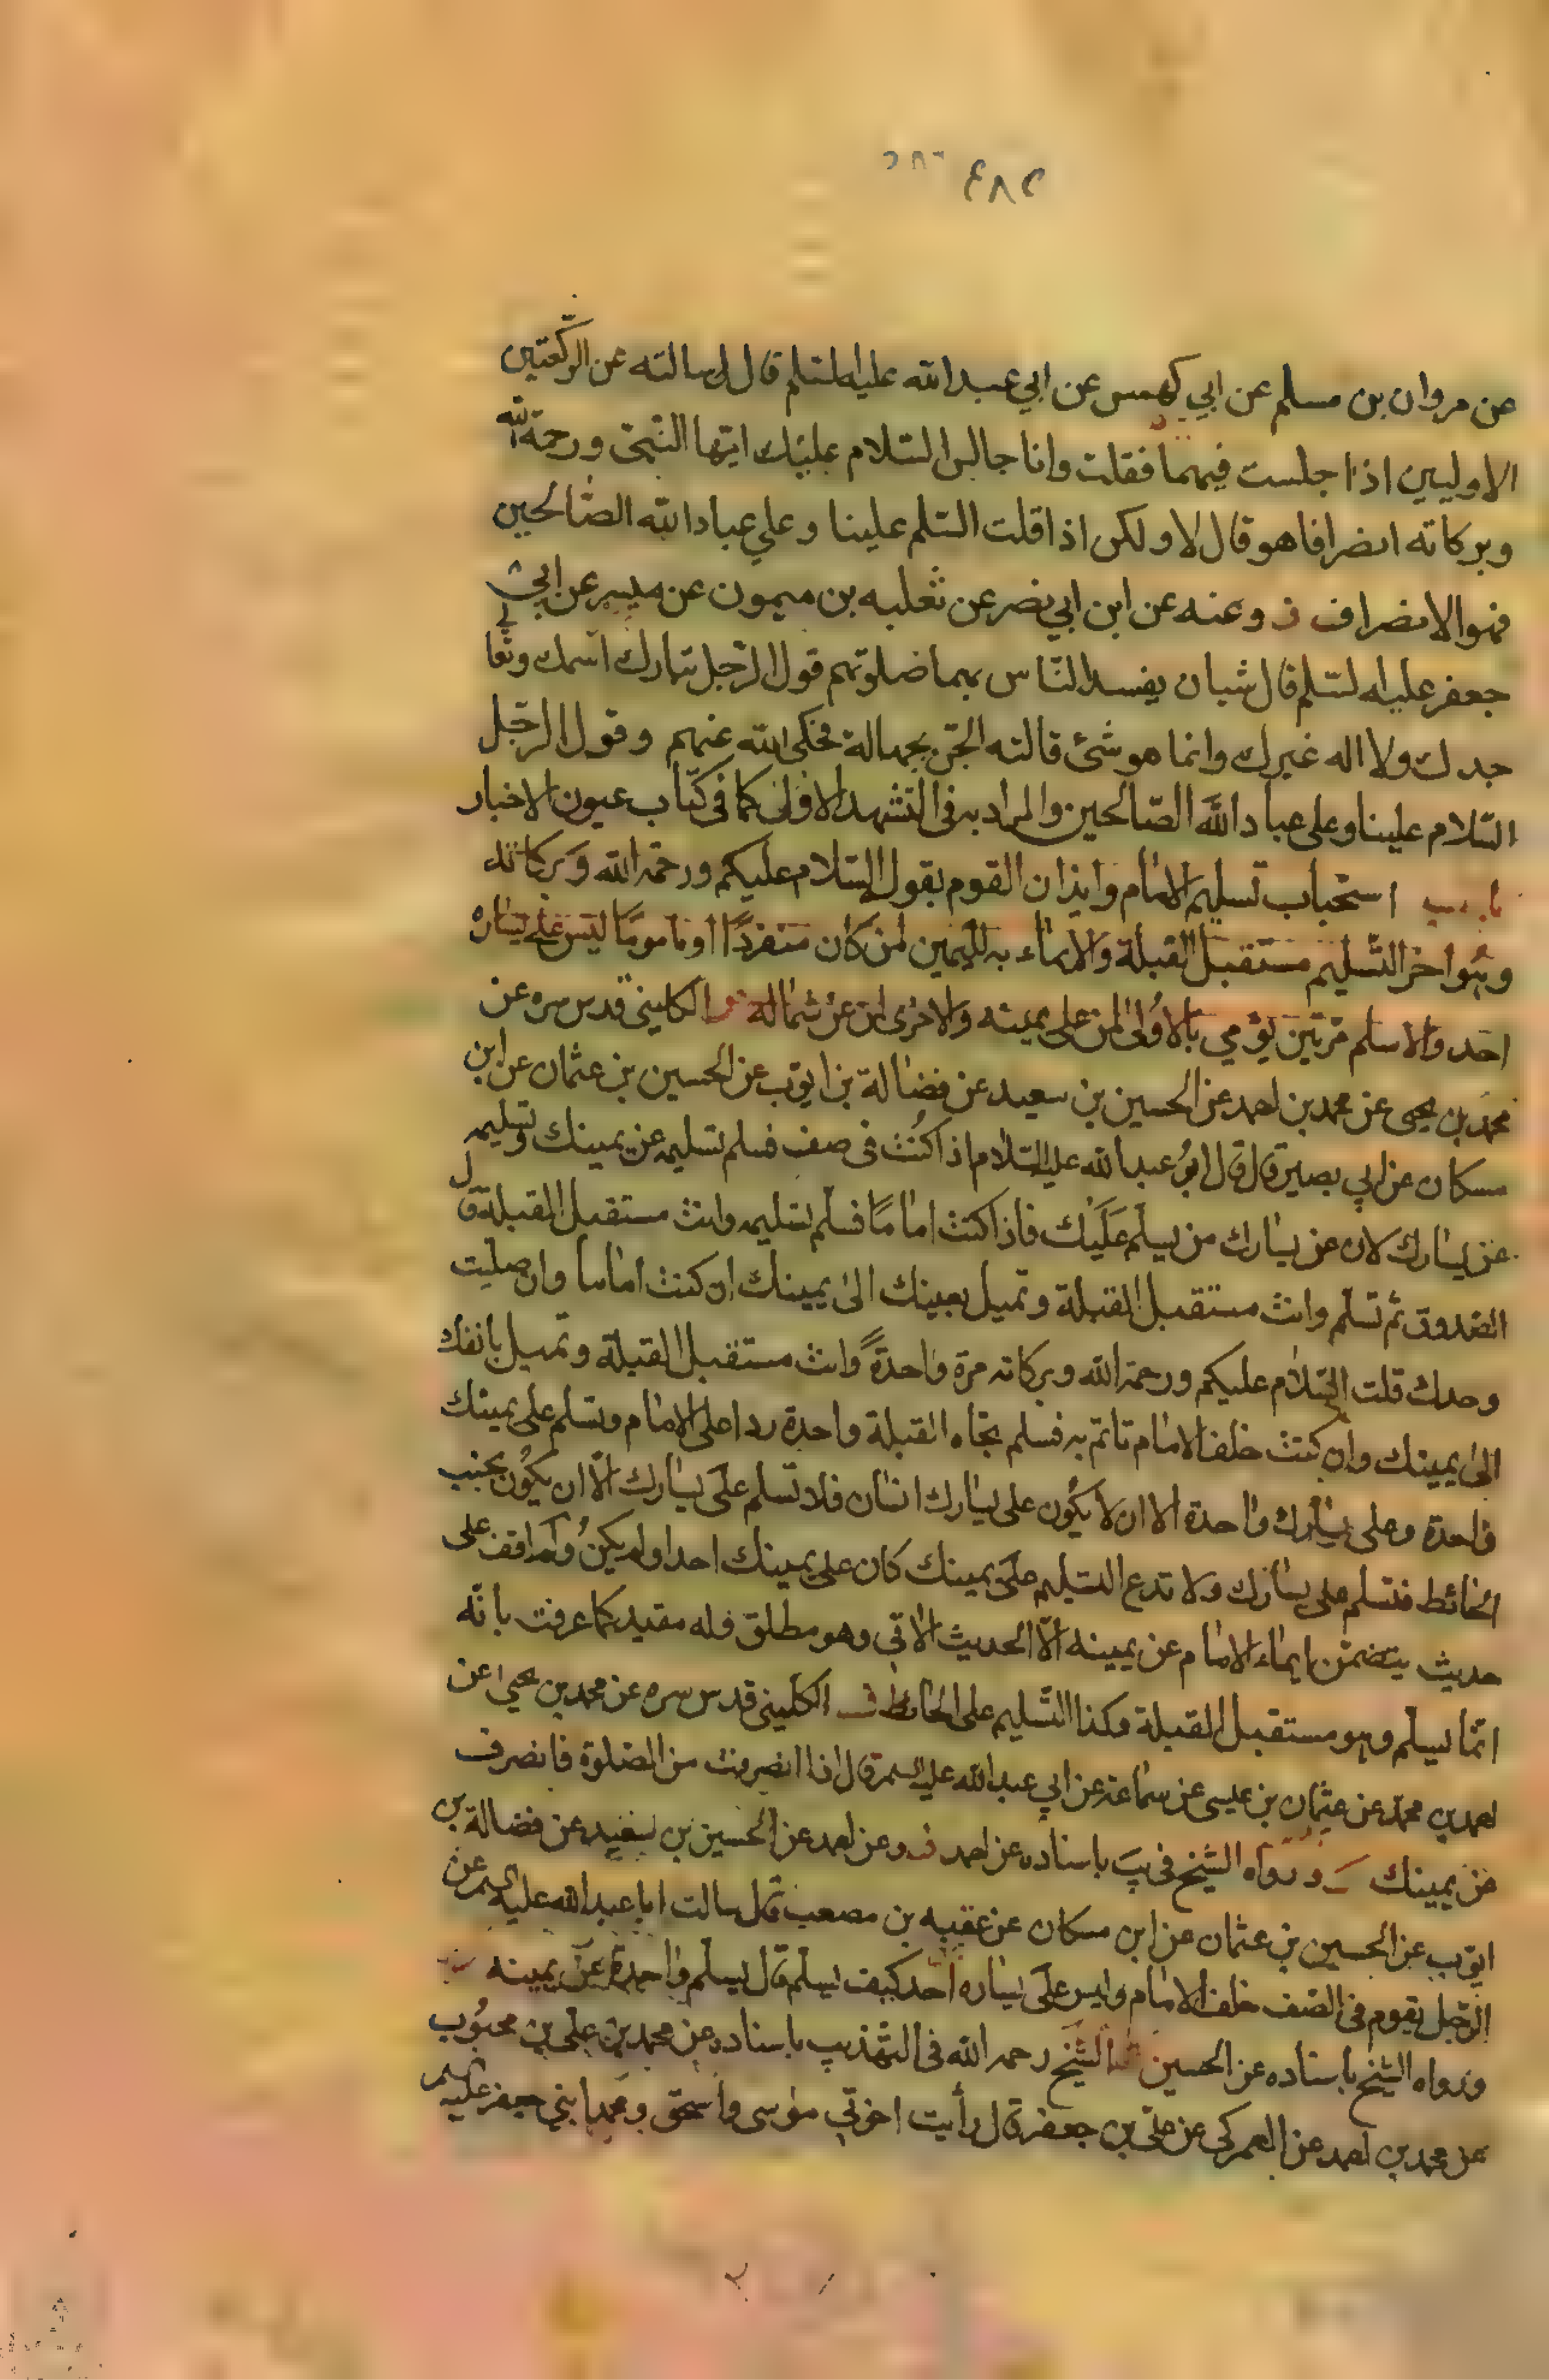 ٤٨٢
عن مروان بن مسلم عن ابي كهمس عن ابي عبد الله عليه السلم قال سالته عن الركعتين
الاوليين اذا جلست فيهما فقلت وانا جالس السلام عليك ايها النبي ورحمة الله
وبركاته انصرافا هو قال لا ولكن اذا قلت السلم علينا وعلي عباد الله الصالحين
فهو الانصراف وعنه عن ابن ابي نصر عن ثعلبه بن ميمون عن ميسر عن ابي
جعفر عليه السلم قال شيان يفسد الناس بهما صلوتهم قول الرجل تبارك اسمك وتعا لي
جدك ولا اله غيرك وانما هو شئ قالته الجن بجهالة فحكى الله عنهم وقول الرجل
السلام علينا وعلى عباد الله الصالحين والمراد به فى التشهد الاول كما فى كتاب عيون الاخبار
باب استحباب تسليم الامام وايذان القوم بقول السلام عليكم ورحمة الله وبركاته
وهو اخر التسليم مستقبل القبلة والايماء به لليمين لمن كان منفردًا او مامومًا ليس على يساره
احد والا سلم مرتين يؤمي بالاولى لمن على يمينه والاخرى لمن عن شماله الكليني قدس سره عن
محمد بن يحيى عن محمد بن احمد عن الحسين بن سعيد عن فضالة بن ايوب عن الحسين بن عثمان عن ابن
مسكان عن ابي بصير قال قال ابو عبد الله عليه السلام اذا كنت فى صف فسلم تسليمه عن يمينك وتسليمه
عن يسارك لان عن يسارك من يسلم عليك فاذا كنت امامًا فسلم تسليمه وانت مستقبل القبلة قال
الصدوق ثم تسلم وانت مستقبل القبلة وتميل بعينك الى يمينك ان كنت اماما وان صليت
وحدك قلت السلام عليكم ورحمة الله وبركاته مرة واحدةً وانت مستقبل القبلة وتميل بانفك
الى يمينك وان كنت خلف الامام تاتم به فسلم تجاه القبلة واحدة ردا على الامام وتسلم على يمينك
واحدة وعلى يسارك واحدة الا ان لا يكون على يسارك انسان فلا تسلم على يسارك الا ان يكون بجنب
الحائط فتسلم على يسارك ولا تدع التسليم على يمينك كان على يمينك احد او لم يكن ولم اقف على
حديث يتضمن ايماء الامام عن يمينه الا الحديث الاتي وهو مطلق فله مقيد كما عرفت بانه
انما يسلم وهو مستقبل القبلة وكذا التسليم على الحائط الكليني قدس سره عن محمد بن يحيى عن
احمد بن محمد عن عثمان بن عيسى عن سماعة عن ابي عبد الله عليه السلم قال اذا انصرفت من الصلوة فانصرف
عن يمينك ورواه الشيخ في يب باسناده عن احمد وعن احمد عن الحسين بن سعيد عن فضالة بن
ايوب عن الحسين بن عثمان عن ابن مسكان عن عقبه بن مصعب قال سالت ابا عبد الله عليه السلم عن
الرجل يقوم فى الصف خلف الامام وليس على يساره احد كيف يسلم قال يسلم واحدة عن يمينه
ورواه الشيخ باسناده عن الحسين الشيخ رحمه الله فى التهذيب باسناده عن محمد بن علي بن محبوب
عن محمد بن احمد عن العمركي عن علي بن جعفر قال رأيت اخوتي موسى واسحق ومحمدا بني جعفر عليه السلم